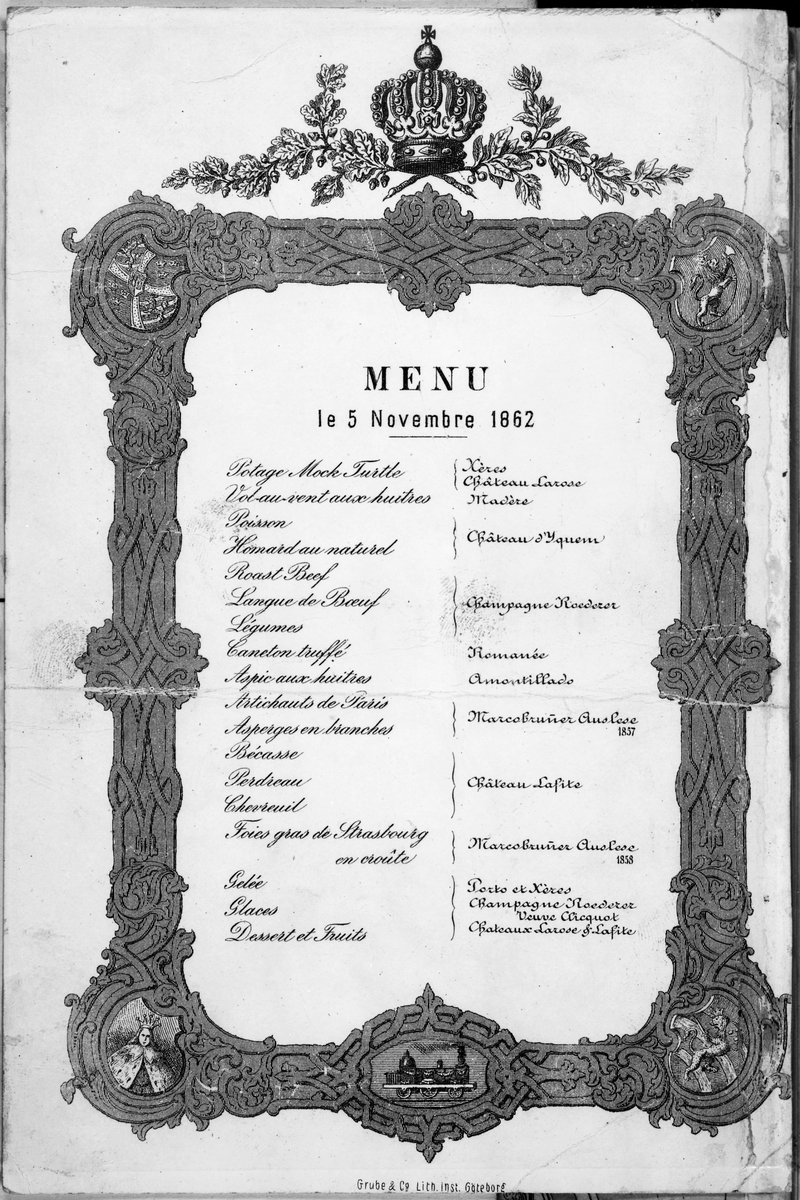 MENU
le 5 Novembre 1862
Potage Mock Turtle
Vol-au-vent aux huitres
Poisson
Homard au naturel
Roast Beef
Langue de Bœuf
Légumes
Caneton truffé
Aspic aux huitres
Artichauts de Paris
Asperges en branches
Bécasse
Perdreau
Chevreuil
Foies gras de Strasbourg
en croûte
Gelée
Glaces
Dessert et Fruits
Xères
Château Larose
Madère
Château d'Yquem
Champagne Roederer
Romanée
Amontillado
Marcobruñer Auslese
1857
Château Lafite
Marcobruñer Auslese
1858
Porto et Xères
Champagne Roederer
Veuve Clicquot
Chateaux Larose & Lafite
Grube & Co Lith. inst. Göteborg